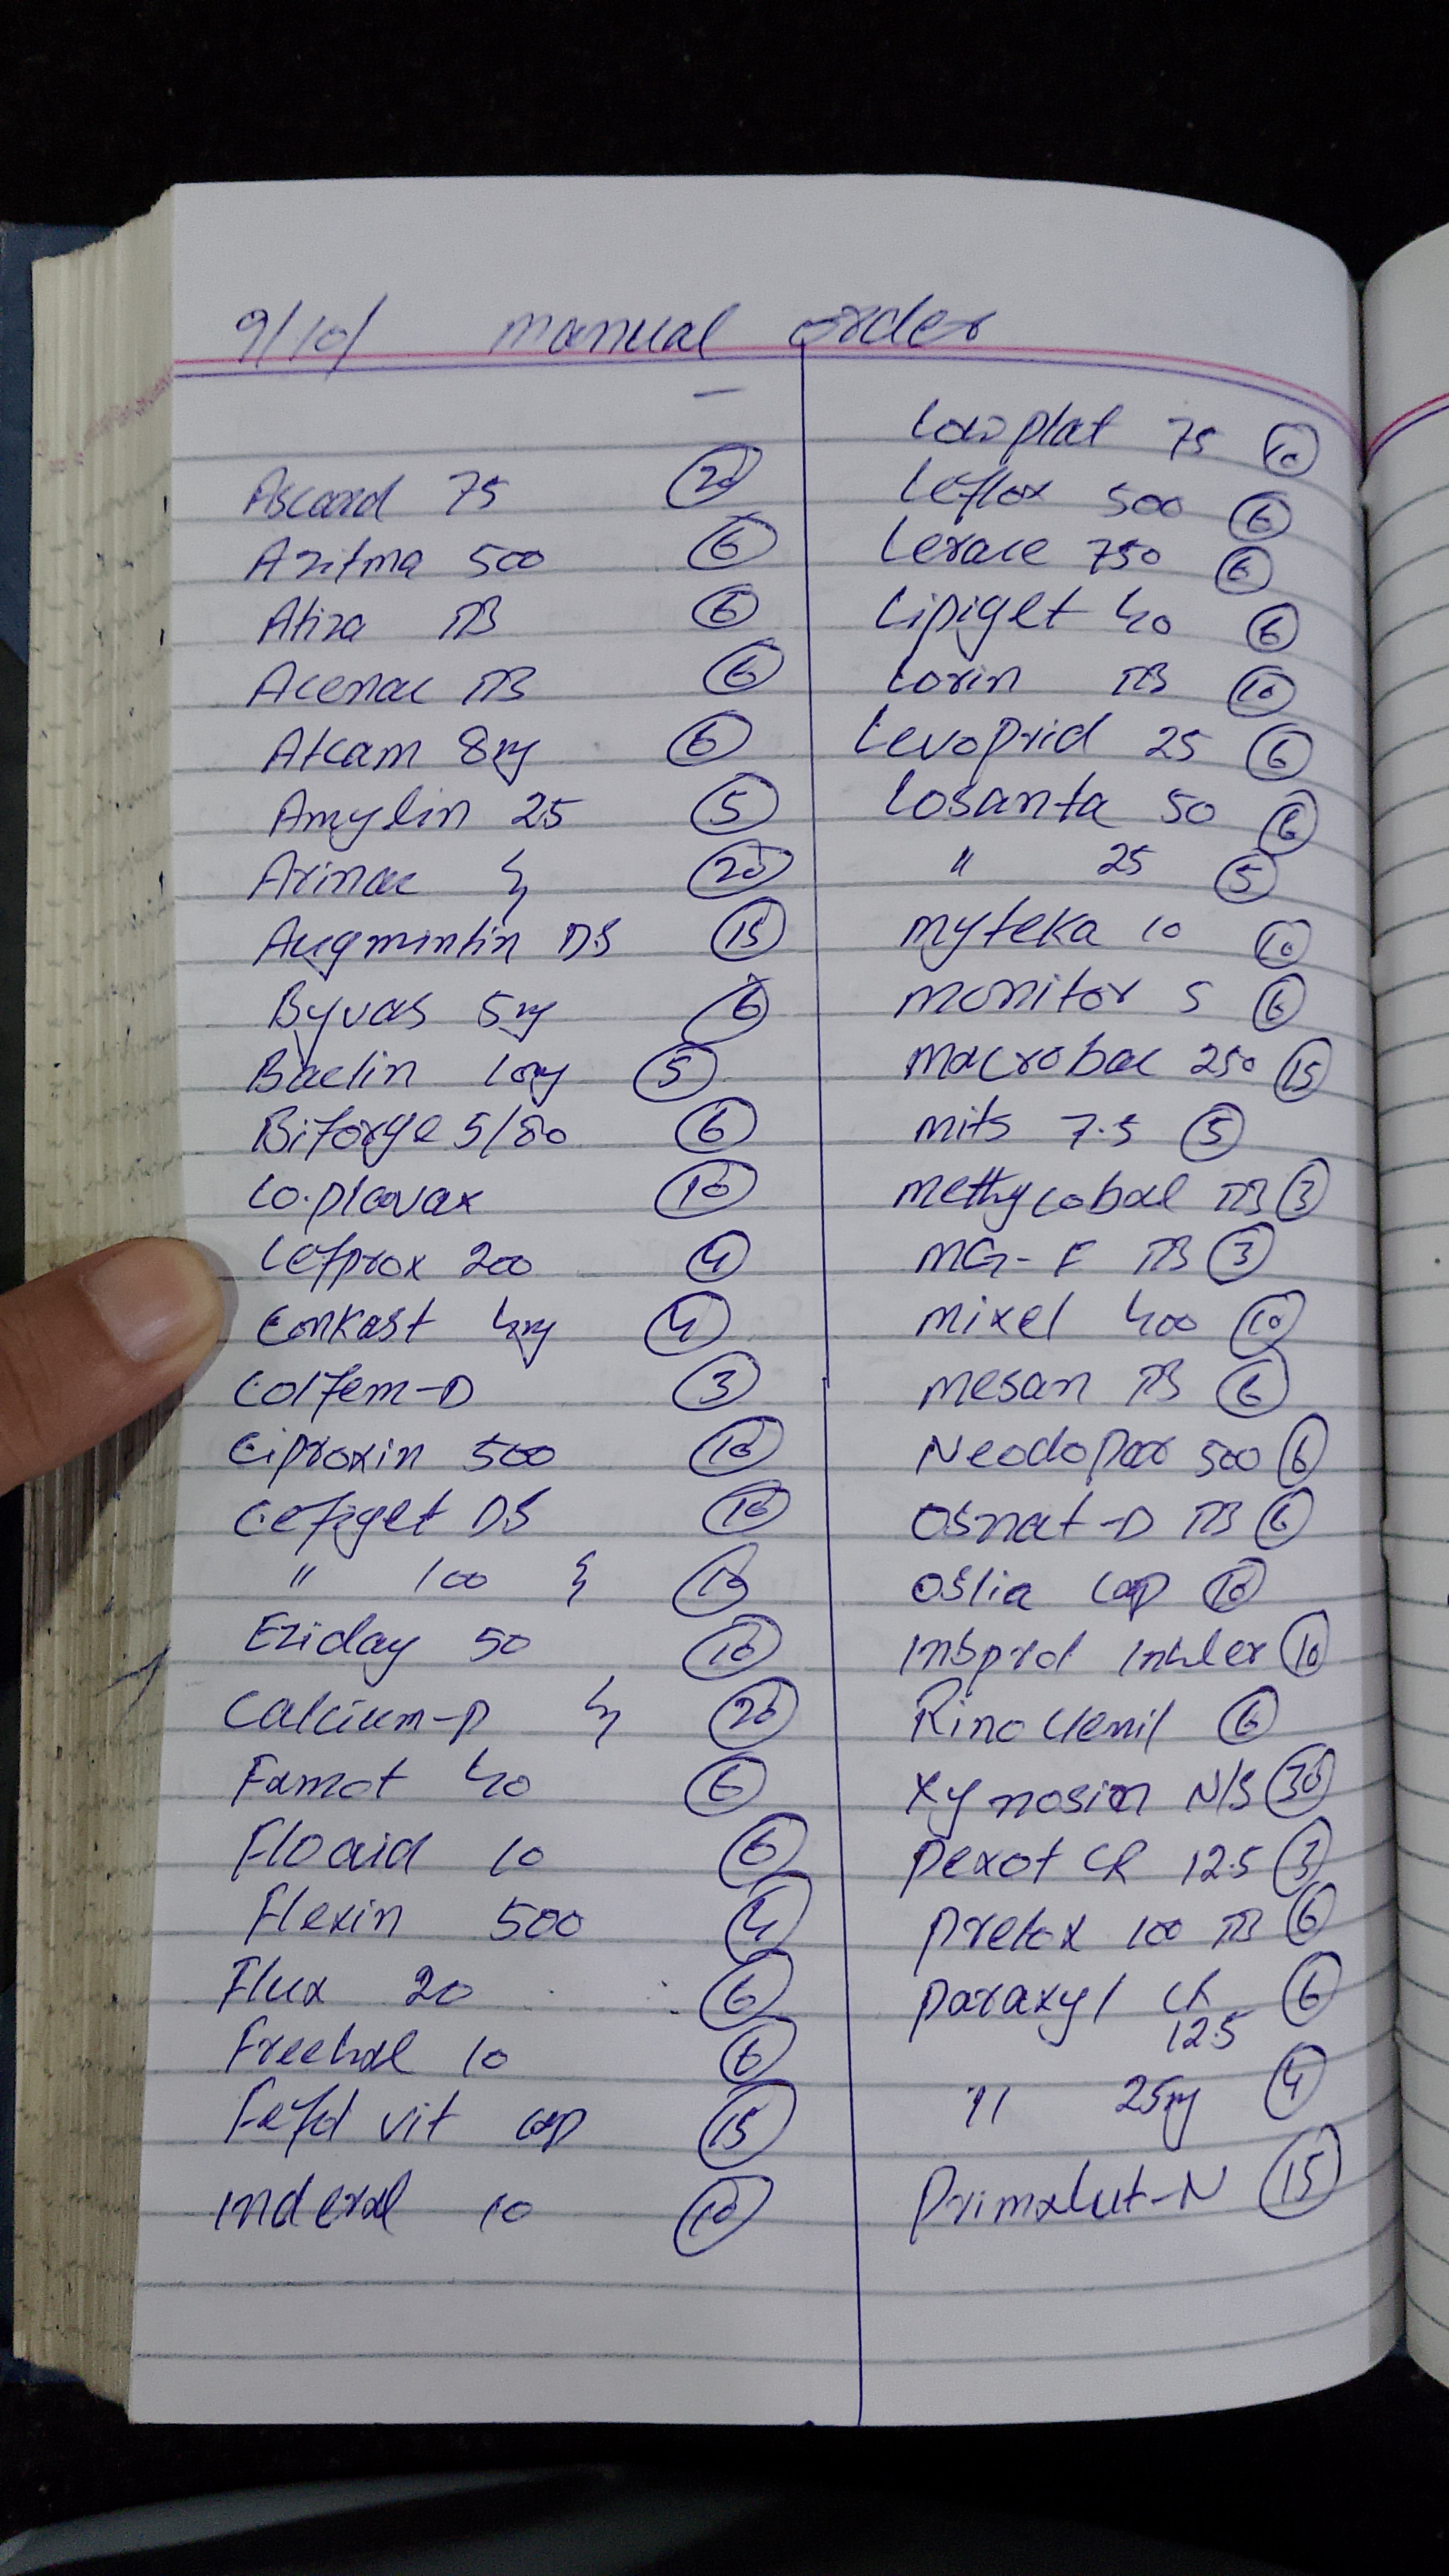 9/10/ manual order
Ascard 75 20
Azitma 500 6
Atiza TB 6
Acenac TB 6
Atcam 8mg 6
Amylin 25 5
Arinac 20
Augmintin DS 15
Byvas 5mg 6
Baclin 10mg 5
Biforge 5/80 6
Co.plavax 10
Cefprox 200 4
Conkast 4mg 4
Colfem-D 3
Ciproxin 500 10
Cefiget DS 10
" 100 10
Eziday 50 10
Calcium-P 20
Famot 40 6
Floaid 10 6
Flexin 500 4
Flux 20 6
Freehal 10 6
Fefol vit cap 15
Inderal 10 10
Lowplat 75 10
Leflox 500 6
Lerace 750 6
Lipiget 40 6
Lorin TB 10
Levoprid 25 6
Losanta 50 6
" 25 5
myteka 10 10
monitor 5 6
macrobac 250 15
mits 7.5 5
methycobal TB 3
MG-F TB 3
mixel 400 10
mesan TB 6
Neodopar 500 6
Osnat-D TB 6
Oslia cap 10
Insprol Inhler 10
Rinoclenil 6
Xynosin N/S 30
Pexot CR 12.5 3
Pretox 100 TB 6
Paraxyl CR 6
12.5
" 25mg 4
Primalut-N 15